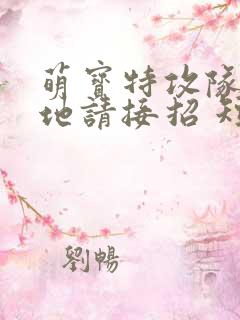 萌寶特攻隊
地請接招 短
劉暢